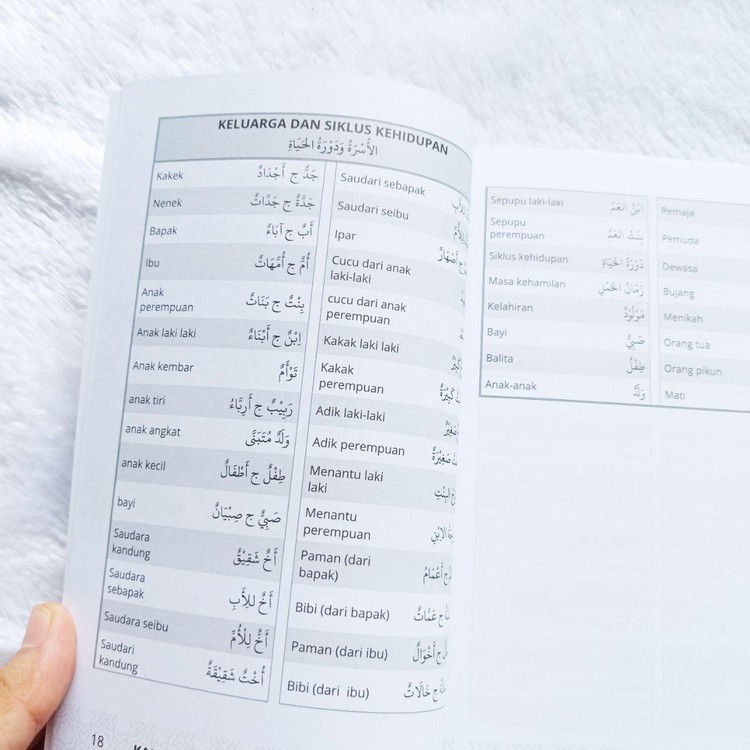 KELUARGA DAN SIKLUS KEHIDUPAN
الأُسْرَةُ وَدَوْرَةُ الْحَيَاةِ
Kakek جَدٌّ ج أَجْدَادٌ
Nenek جَدَّةٌ ج جَدَّاتٌ
Bapak أَبٌ ج آبَاءٌ
Ibu أُمٌّ ج أُمَّهَاتٌ
Anak
perempuan بِنْتٌ ج بَنَاتٌ
Anak laki laki اِبْنٌ ج أَبْنَاءٌ
Anak kembar تَوْأَمٌ
anak tiri رَبِيْبٌ ج أَرِبَّاءُ
anak angkat وَلَدٌ مُتَبَنَّى
anak kecil طِفْلٌ ج أَطْفَالٌ
bayi صَبِيٌّ ج صِبْيَانٌ
Saudara
kandung أَخٌ شَقِيْقٌ
Saudara
sebapak أَخٌ لِلْأَبِ
Saudara seibu أَخٌ لِلْأُمِّ
Saudari
kandung أُخْتٌ شَقِيْقَةٌ
Saudari sebapak
Saudari seibu
Ipar ج أَصْهَارٌ
Cucu dari anak
laki-laki
cucu dari anak
perempuan
Kakak laki laki
Kakak
perempuan كَبِيْرَةٌ
Adik laki-laki صَغِيْرٌ
Adik perempuan صَغِيْرَةٌ
Menantu laki
laki الْبِنْتِ
Menantu
perempuan الاِبْنِ
Paman (dari
bapak) ج أَعْمَامٌ
Bibi (dari bapak) ج عَمَّاتٌ
Paman (dari ibu) ج أَخْوَالٌ
Bibi (dari ibu) ج خَالَاتٌ
18
Sepupu laki-laki ابْنُ العَمِّ
Sepupu
perempuan بِنْتُ العَمِّ
Siklus kehidupan دَوْرَةُ الْحَيَاةِ
Masa kehamilan زَمَانُ الْحَمْلِ
Kelahiran مَوْلُوْدٌ
Bayi صَبِيٌّ
Balita طِفْلٌ
Anak-anak وَلَدٌ
Remaja
Pemuda
Dewasa
Bujang
Menikah
Orang tua
Orang pikun
Mati